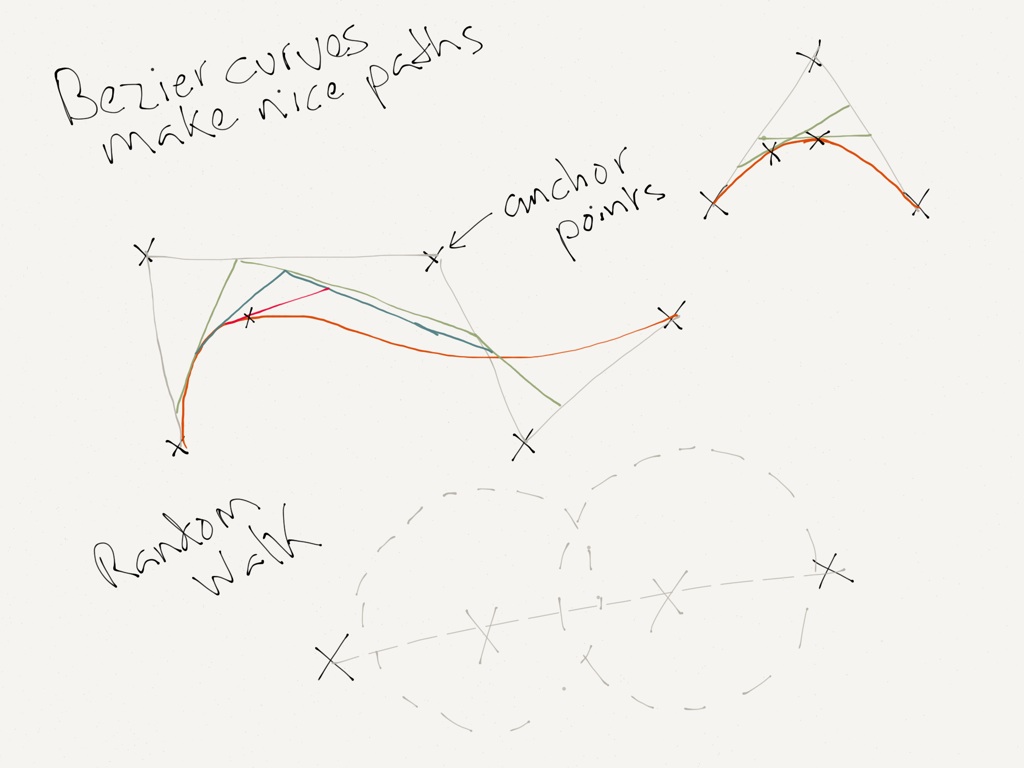 Bezier curves
make nice paths
anchor
points
Random
Walk